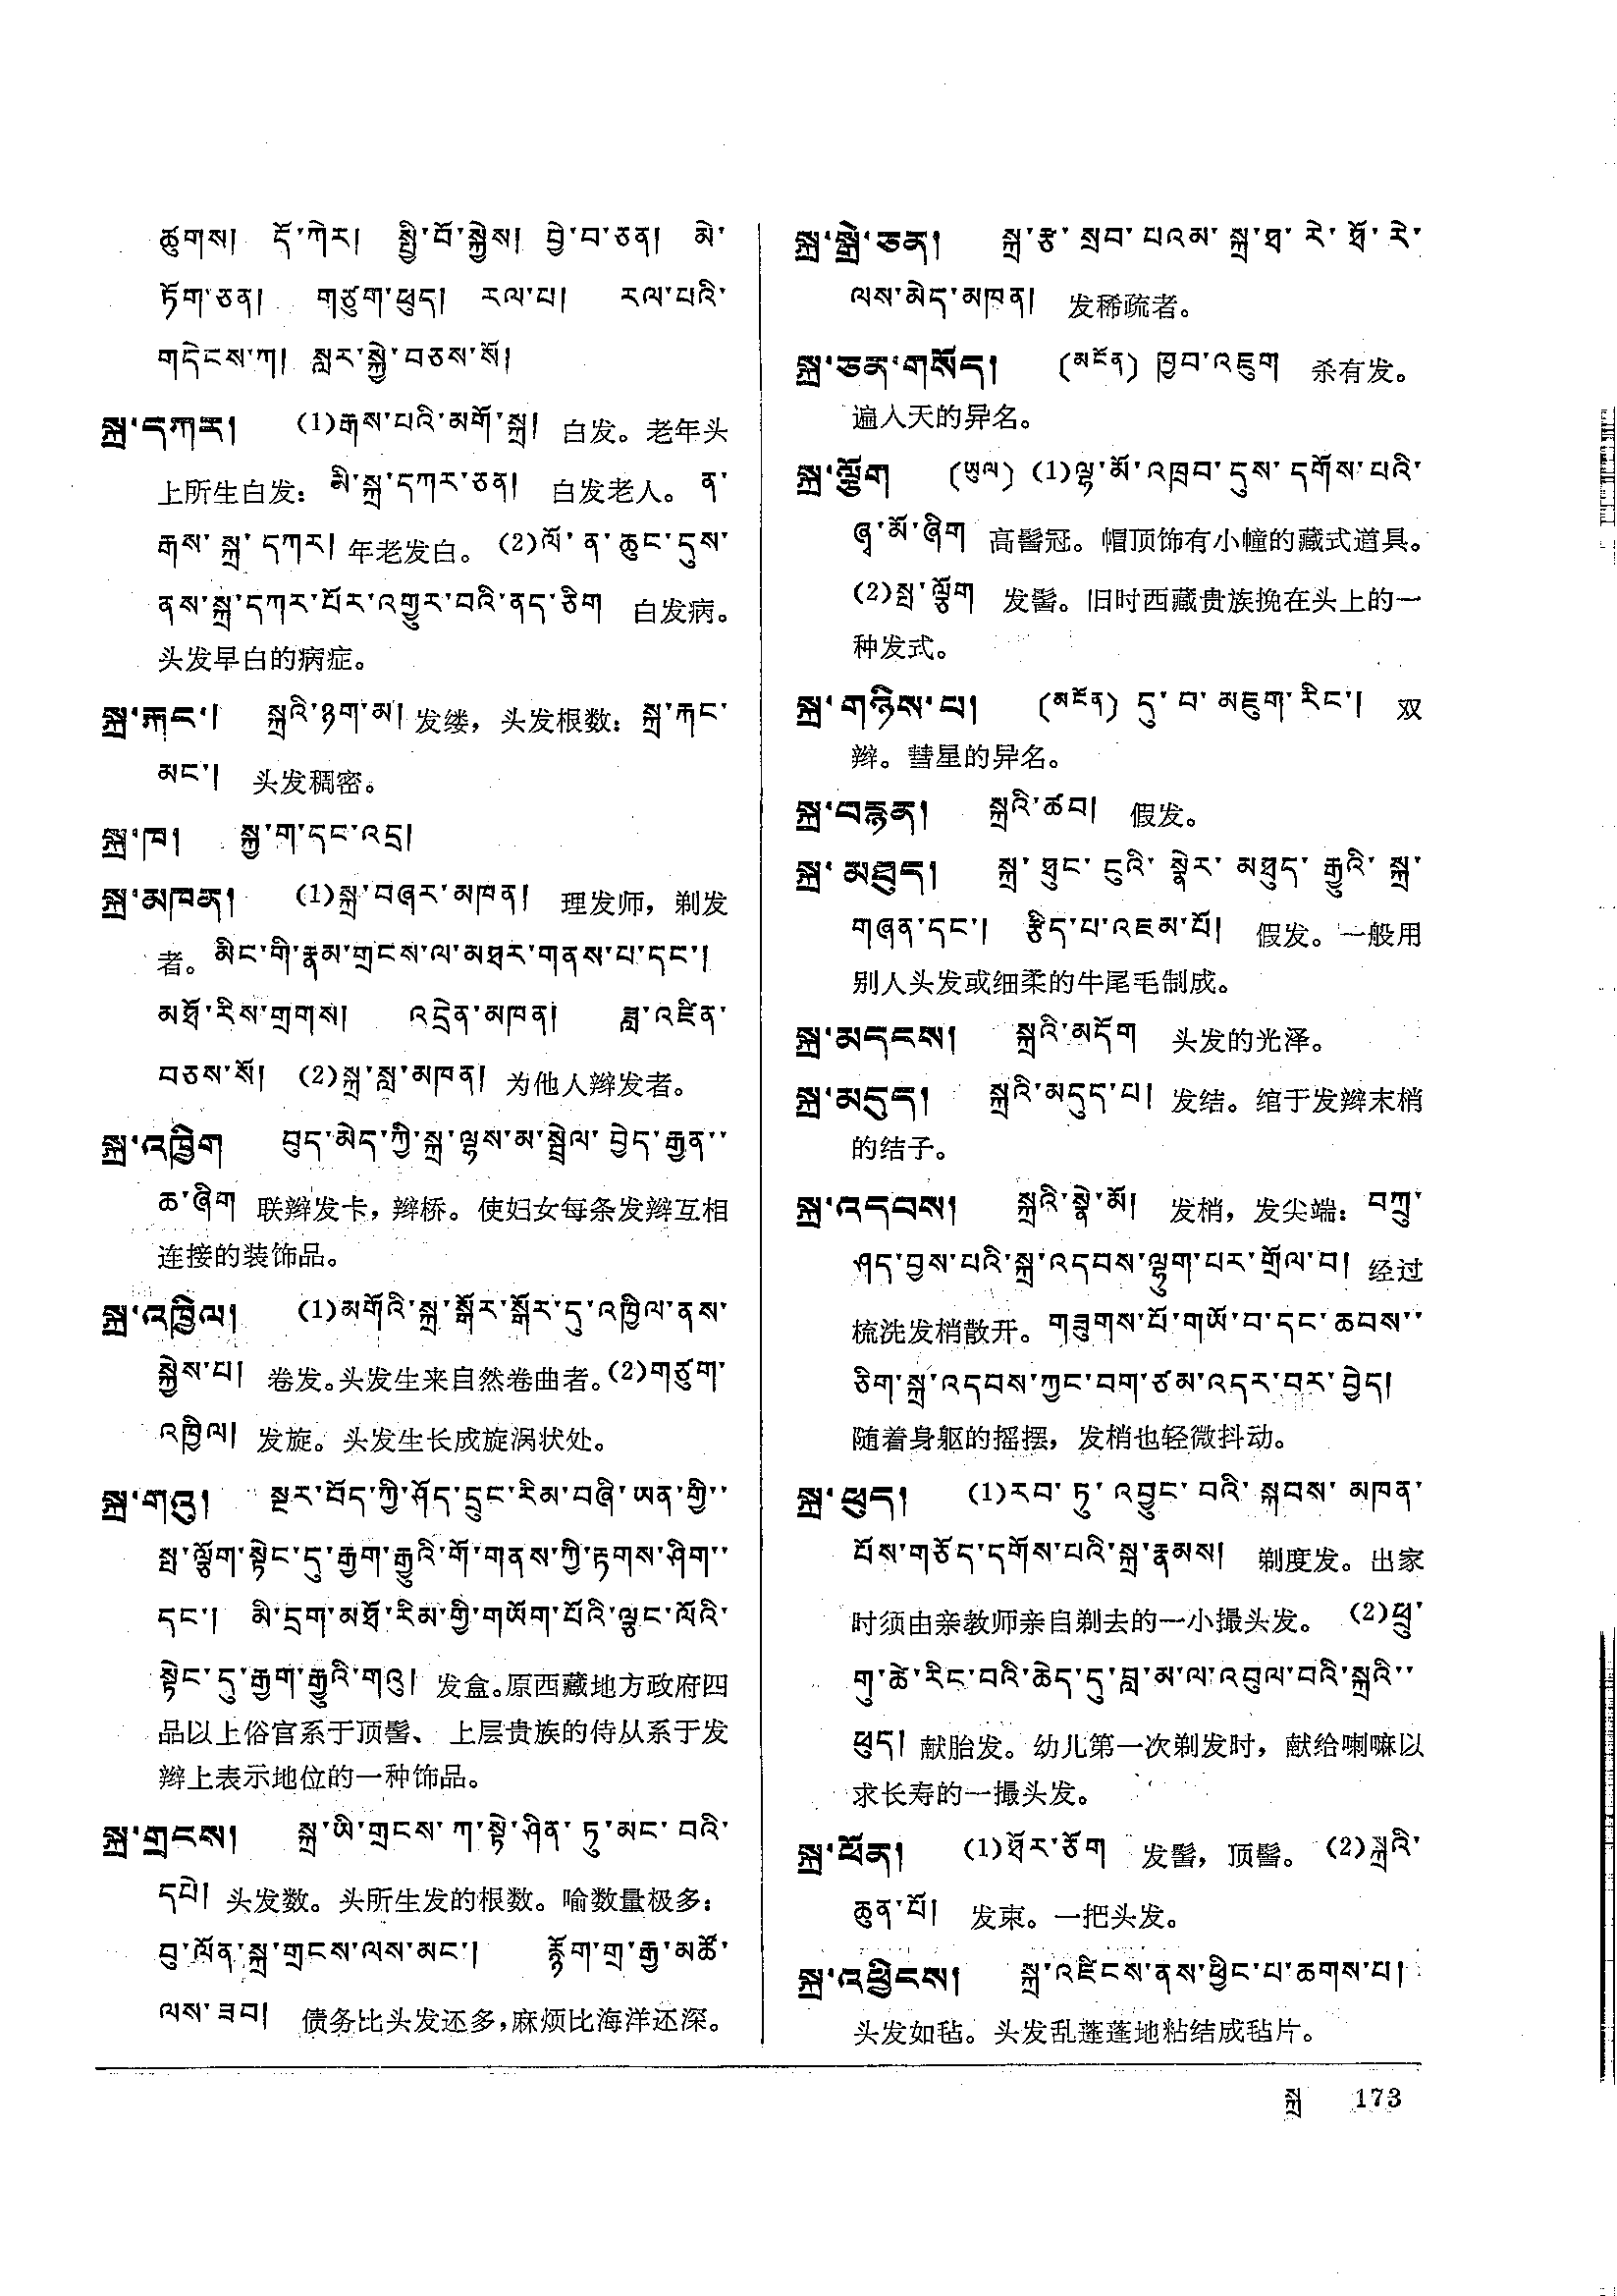 ཚུགས། དོ་ཀེར། སྤྱི་བོ་སྐྱེས། བྱེ་བ་ཅན། མེ་
ཏོག་ཅན། གཙུག་ཕུད། རལ་པ། རལ་པའི་
གདེངས་ཀ། སླར་སྐྱེ་བཅས་སོ།
སྐྲ་དཀར། (1)རྒས་པའི་མགོ་སྐྲ། 白发。老年头
上所生白发：མི་སྐྲ་དཀར་ཅན། 白发老人。ན་
རྒས་སྐྲ་དཀར། 年老发白。(2)ལོ་ན་ཆུང་དུས་
ནས་སྐྲ་དཀར་པོར་འགྱུར་བའི་ནད་ཅིག 白发病。
头发早白的病症。
སྐྲ་རྐང་། སྐྲའི་ཉག་མ། 发缕，头发根数：སྐྲ་རྐང་
མང་། 头发稠密。
སྐྲ་ཁ། སྐྱ་ག་དང་འདྲ།
སྐྲ་མཁན། (1)སྐྲ་བཞར་མཁན། 理发师，剃发
者。མིང་གི་རྣམ་གྲངས་ལ་མཐར་གནས་པ་དང་།
མཐོ་རིས་གྲགས། འདྲེན་མཁན། ཟླ་འཛིན་
བཅས་སོ། (2)སྐྲ་སླ་མཁན། 为他人辫发者。
སྐྲ་འཁྱིག བུད་མེད་ཀྱི་སྐྲ་ལྷས་མ་སྦྲེལ་བྱེད་རྒྱན་་
ཆ་ཞིག 联辫发卡，辫桥。使妇女每条发辫互相
连接的装饰品。
སྐྲ་འཁྱིལ། (1)མགོའི་སྐྲ་སྒོར་སྒོར་དུ་འཁྱིལ་ནས་
སྐྱེས་པ། 卷发。头发生来自然卷曲者。(2)གཙུག་
འཁྱིལ། 发旋。头发生长成旋涡状处。
སྐྲ་གའུ། སྔར་བོད་ཀྱི་ཤོད་དྲུང་རིམ་བཞི་ཡན་གྱི་་
སྤ་ལྕོག་སྟེང་དུ་རྒྱག་རྒྱུའི་གོ་གནས་ཀྱི་རྟགས་ཤིག་་
དང་། མི་དྲག་མཐོ་རིམ་གྱི་གཡོག་པོའི་ལྕང་ལོའི་
སྟེང་དུ་རྒྱག་རྒྱུའི་གའུ། 发盒。原西藏地方政府四
品以上俗官系于顶髻、上层贵族的侍从系于发
辫上表示地位的一种饰品。
སྐྲ་གྲངས། སྐྲ་ཡི་གྲངས་ཀ་སྟེ་ཤིན་ཏུ་མང་བའི་
དཔེ། 头发数。头所生发的根数。喻数量极多：
བུ་ལོན་སྐྲ་གྲངས་ལས་མང་། རྙོག་གྲ་རྒྱ་མཚོ་
ལས་ཟབ། 债务比头发还多,麻烦比海洋还深。
སྐྲ་སྒྲེ་ཅན། སྐྲ་རྩ་སྲབ་པའམ་སྐྲ་ཐ་རེ་ཐོ་རེ་
ལས་མེད་མཁན། 发稀疏者。
སྐྲ་ཅན་གསོད། (མངོན) ཁྱབ་འཇུག 杀有发。
遍入天的异名。
སྐྲ་ལྕོག (ཡུལ) (1)ལྷ་མོ་འཁྲབ་དུས་དགོས་པའི་
ཞྭ་མོ་ཞིག 高髻冠。帽顶饰有小幢的藏式道具。
(2)སྤ་ལྕོག 发髻。旧时西藏贵族挽在头上的一
种发式。
སྐྲ་གཉིས་པ། (མངོན) དུ་བ་མཇུག་རིང་། 双
辫。彗星的异名。
སྐྲ་བརྙན། སྐྲའི་ཚབ། 假发。
སྐྲ་མཐུད། སྐྲ་ཐུང་ངུའི་སྣེར་མཐུད་རྒྱུའི་སྐྲ་
གཞན་དང་། རྩིད་པ་འཇམ་པོ། 假发。一般用
别人头发或细柔的牛尾毛制成。
སྐྲ་མདངས། སྐྲའི་མདོག 头发的光泽。
སྐྲ་མདུད། སྐྲའི་མདུད་པ། 发结。绾于发辫末梢
的结子。
སྐྲ་འདབས། སྐྲའི་སྣེ་མོ། 发梢，发尖端：བཀྲུ་
ཤད་བྱས་པའི་སྐྲ་འདབས་ལྷུག་པར་གྲོལ་བ། 经过
梳洗发梢散开。གཟུགས་པོ་གཡོ་བ་དང་ཆབས་་
ཅིག་སྐྲ་འདབས་ཀྱང་བག་ཙམ་འདར་བར་བྱེད།
随着身躯的摇摆，发梢也轻微抖动。
སྐྲ་ཕུད། (1)རབ་ཏུ་འབྱུང་བའི་སྐབས་མཁན་
པོས་གཅོད་དགོས་པའི་སྐྲ་རྣམས། 剃度发。出家
时须由亲教师亲自剃去的一小撮头发。(2)ཕྲུ་
གུ་ཚེ་རིང་བའི་ཆེད་དུ་བླ་མ་ལ་འབུལ་བའི་སྐྲའི་་
ཕུད། 献胎发。幼儿第一次剃发时，献给喇嘛以
求长寿的一撮头发。
སྐྲ་ཕོན། (1)ཐོར་ཅོག 发髻，顶髻。(2)སྐྲའི་
ཆུན་པོ། 发束。一把头发。
སྐྲ་འཕྱིངས། སྐྲ་འཛིངས་ནས་ཕྱིང་པ་ཆགས་པ།
头发如毡。头发乱蓬蓬地粘结成毡片。
སྐྲ 173